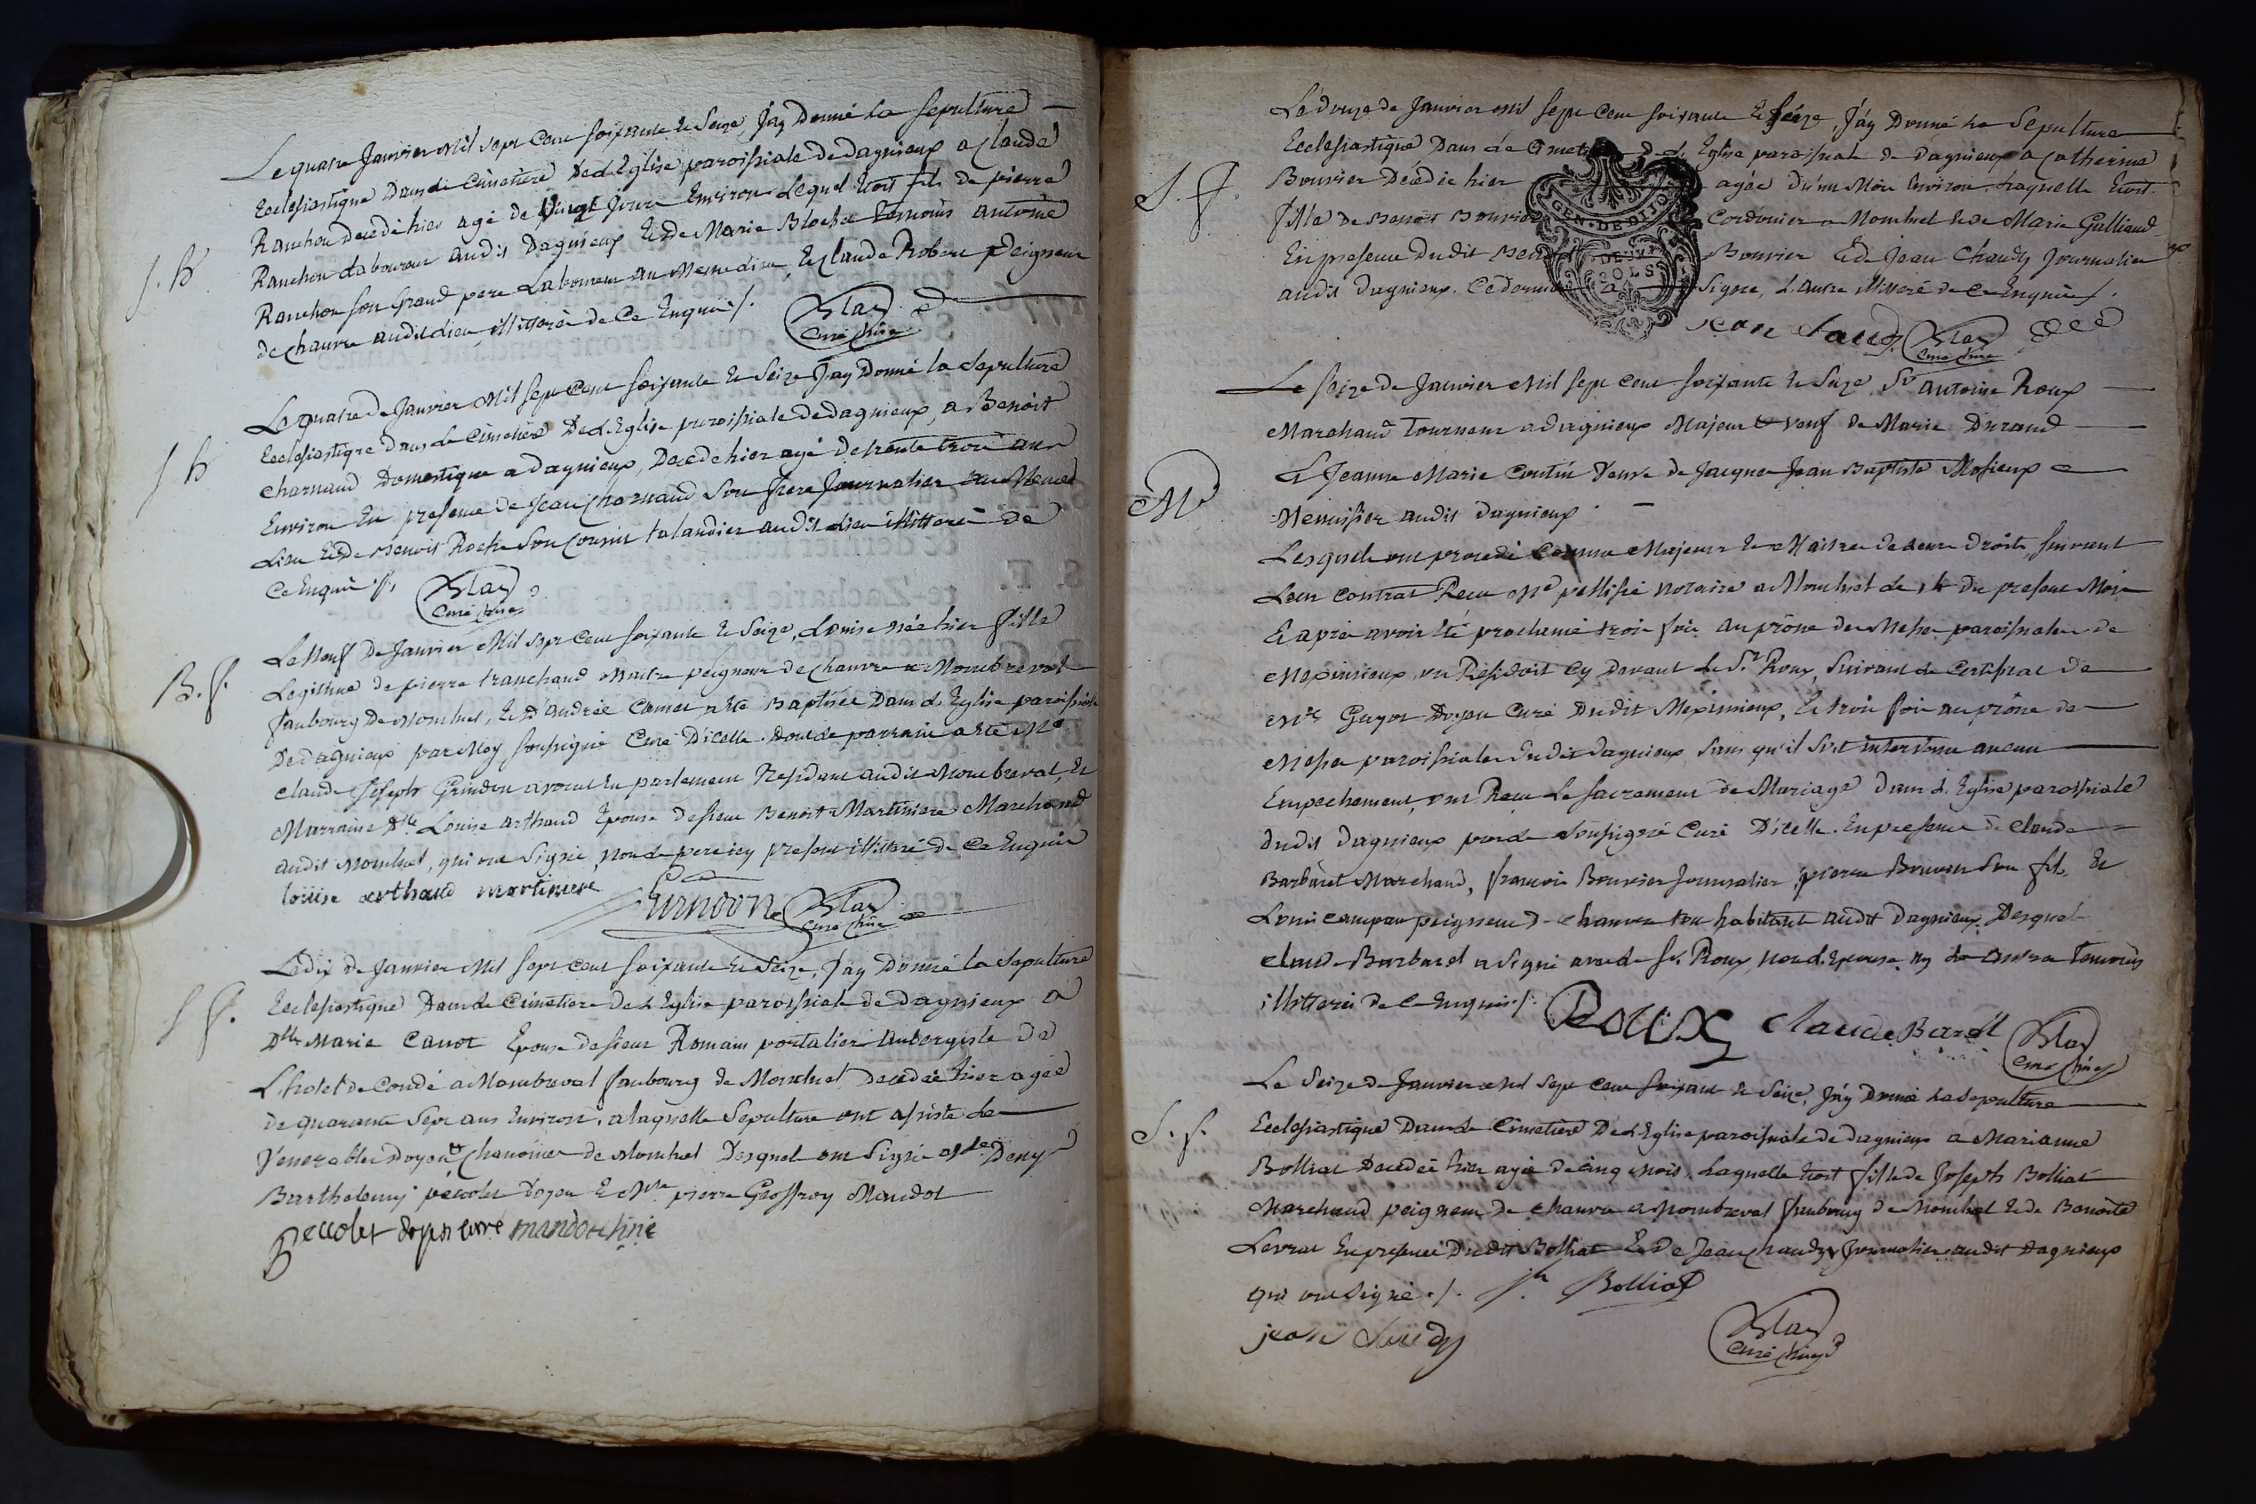 Le quatre Janvier Mil sept cent soixante & Seize, J'ay Donné La Sepulture
Ecclesiastique Dans le Cimetiere De L'Eglise paroissiale de Dagnieux a Claude
S. h. Ranchon decedé hier agé de Vingt Jours Environ Lequel Etoit fils de pierre
Ranchon Laboureur audit Dagnieux Et de Marie Blochet temoins antoine
Ranchon son Grand pere Laboureur au Meme Lieu, Et Claude Robert peigneur
de chanvre audit Lieu illitteré de Ce Enquis /.
Curé
Le quatre de Janvier Mil sept Cent soixante & Seize J'ay Donné la Sepulture
Ecclesiastique dans Le Cimetiere De L'Eglise paroissiale de dagnieux, a Benoit
S h charnaud Domestique a Dagnieux, Decedé hier agé de trente trois ans
Environ En presence de Jean Charnaud Son frere Journalier au Meme
Lieu Et de Benoit Roche Son Cousin talandier audit Lieu illitteré de
Ce Enquis /.
Curé
Le Neuf De Janvier Mil Sept Cent soixante & Seize, Louise née hier fille
B. f. Legitime de pierre tranchand Maitre peigneur de chanvre a Mombreval
faubourg De Montluel, Et d'andrée Camet a été Baptisée Dans L'Eglise paroissiale
De Dagnieux par Moy soussigné Curé D'icelle. Dont le parrain a été Me
Claude Joseph Grindon avocat En parlement Residant audit Mombreval, Et
Marraine Dlle Louise arthaud Epouse de sieur Benoit Martiniere Marchand
audit Montluel, qui ont Signé, Non le pere icy present illitteré de Ce Enquis
loüise arthaud martiniere
Curé
Le dix de Janvier Mil sept Cent soixante & Seize, J'ay Donné la Sepulture
S f. Ecclesiastique Dans Le Cimetiere de L'Eglise paroissiale de Dagnieux a
Dlle Marie Canot Epouse de sieur Romain portalier aubergiste De
L'hotel de Condé a Mombreval faubourg de Montluel Decedée hier agée
de quarante Sept ans Environ, a laquelle Sepulture ont assisté Les
Venerables Doyen & Chanoines de Montluel Desquels ont Signé Denys
Barthelemy peccolet Doyen & pierre Geoffroy Mandot
peccolet doyen curé mandot
Le douze de Janvier Mil sept Cent soixante & Seize, J'ay Donné La Sepulture
Ecclesiastique Dans Le Cimetiere de L'Eglise paroissiale de Dagnieux a Catherine
S. f. Bouvier Décédée hier agée d'un Mois Environ Laquelle Etoit
fille de Benoit Bouvier Cordonier a Montluel & de Marie Galliand
En presence Dudit Benoit Bouvier & de Jean Chaudy Journalier
audit Dagnieux. Ce dernier a Signé, L'autre illitteré de Ce Enquis /.
GEN. DE DIJON
DEUX
SOLS
Jean Chaudy
Curé
Le seize de Janvier Mil sept Cent soixante & Seize Sr antoine Roux
Marchand Tourneur a dagnieux Majeur & veuf de Marie Durand
& Jeanne Marie Coutin Veuve de Jacques Jean Baptiste Mosieux
M Menuisier audit Dagnieux
Lesquels ont procedé Comme Majeurs & Maitres de Leurs Droits suivant
Leur Contrat Recu Me notaire a Montluel Le 14 Du present Mois
Et aprés avoir été proclamé trois fois au prône des Messes paroissiales de
Meximieux, ou Residoit Cy Devant Le Sr Roux, Suivant Le Certificat de
Mre Guyot Doyen Curé Dudit Meximieux, & trois fois au prône des
Messes paroissiales dudit dagnieux sans qu'il soit intervenu aucun
Empechement, ont Recu Le Sacrement de Mariage Dans L'Eglise paroissiale
dudit Dagnieux par Le Soussigné Curé D'icelle. En presence de Claude
Barbaret Marchand, francois Bouvier Journalier, pierre Bouvier Son fils, &
Louis peigneur de chanvre tous habitants audit Dagnieux. Desquels
Claude Barbaret a Signé avec Le Sr Roux, non L'Epouse, ny Les autres temoins
illitterés de Ce Enquis /.
Roux Claude
Curé
Le Seize de Janvier Mil sept Cent soixante & Seize, J'ay Donné La Sepulture
S. f. Ecclesiastique Dans Le Cimetiere De L'Eglise paroissiale de Dagnieux a Marianne
Bolliat Decedée hier agée de Cinq Mois. Laquelle Etoit fille de Joseph Bolliat
Marchand peigneur de chanvre a Mombreval faubourg de Montluel & de Benoite
Levrat En presence Dudit Bolliat & De Jean Chaudy Journalier audit Dagnieux
qui ont Signé. /. Jh Bolliat
jean Chaudy
Curé